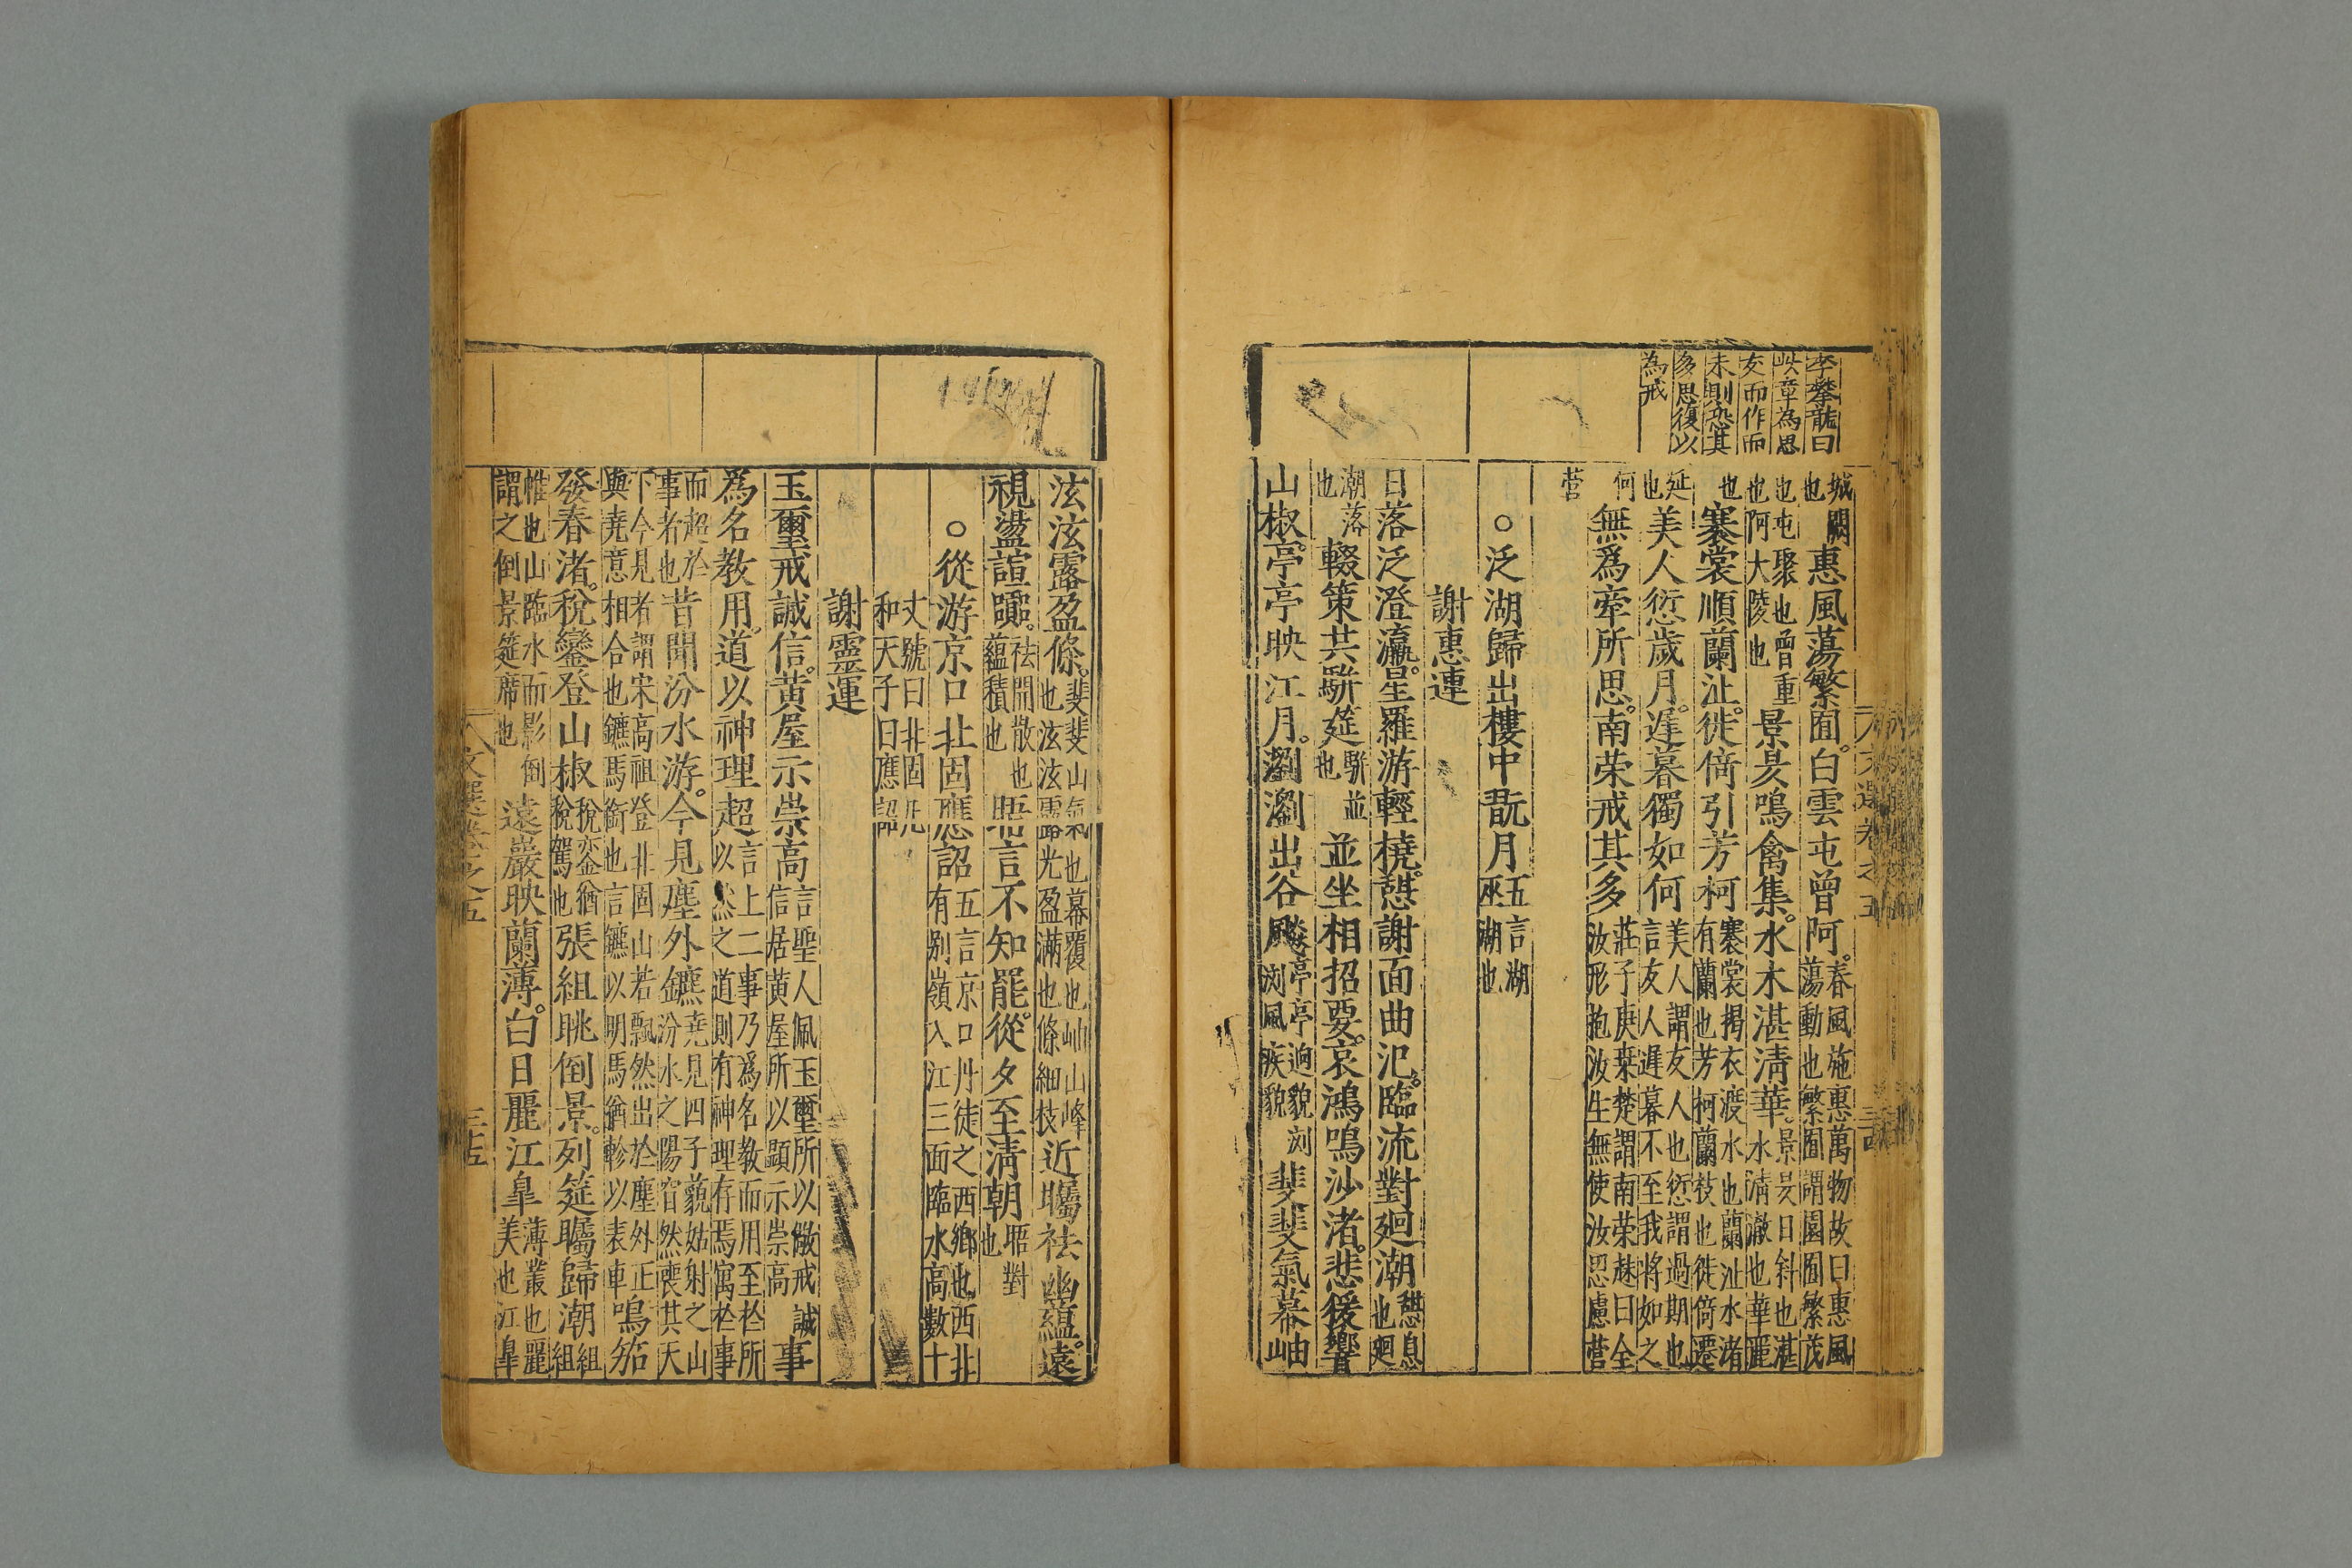 李攀龍曰
此章為思
友而作而
未則恐其
多思復以
為戒
城闕
也
惠風蕩繁囿。白雲屯曾阿。
春風施惠萬物故曰惠風
蕩動也繁囿謂園囿繁茂
也屯聚也曾重
也阿大陵也
景昃鳴禽集。水木湛清華。
景昃日斜也湛
水清澈也華麗
也
褰裳順蘭沚。徙倚引芳柯
褰裳揭衣渡水也蘭沚水渚
有蘭也芳柯蘭枝也徙倚遷
延
也
美人愆歲月。遲暮獨如何
美人謂友人也愆謂過期也
言友人遲暮不至我將如之
何
無爲牽所思。南荣戒其多
莊子庚桒楚謂南荣趎曰全
汝形抱汝生無使汝思慮营
营
○泛湖歸出樓中翫月
五言湖
巫湖也
謝惠連
日落泛澄瀛。星羅游輕橈。憇謝面曲汜。臨流對廻潮
憇息
也廻
潮落
也
輟策共駢筵
駢並
也
並坐相招要。哀鴻鳴沙渚。悲猨響
山椒。亭亭映江月。瀏瀏出谷飈
亭亭逈貌浏
浏風疾貌
斐斐氣幕岫
文選卷之五
泫泫露盈條。
斐斐山氣也幕覆也岫山峰
也泫泫露光盈滿也條細技
近矚祛幽蘊。遠
視盪諠囂。
祛開散也
蘊積也
晤言不知罷。從夕至清朝
晤對
也
○從游京口北固應詔
五言京口丹徒之西鄉也西北
有别嶺入江三面臨水高數十
丈號曰北固元
和天子日應詔
謝靈運
玉璽戒誠信。黃屋示崇高
言聖人佩玉璽所以儆戒誠
信居黃屋所以顯示崇高
事
爲名教用。道以神理超
言上二事乃爲名教而用至於所
以然之道則有神理存焉寓於事
而超於
事者也
昔聞汾水游。今見塵外鑣
堯見四子藐姑射之山
汾水之陽窅然喪其天
下今見者謂宋高祖登北固山若飄然出於塵外正
與堯意相合也鑣馬銜也言鑣以明馬猶軫以表車
鳴笳
發春渚。稅鑾登山椒
稅鑾猶
稅駕也
張組眺倒景。列筵矚歸潮
組
組
帷也山臨水而影倒
謂之倒景筵席也
遠巖映蘭薄。白日麗江皐
薄叢也麗
美也江皐
文選卷之五
三五